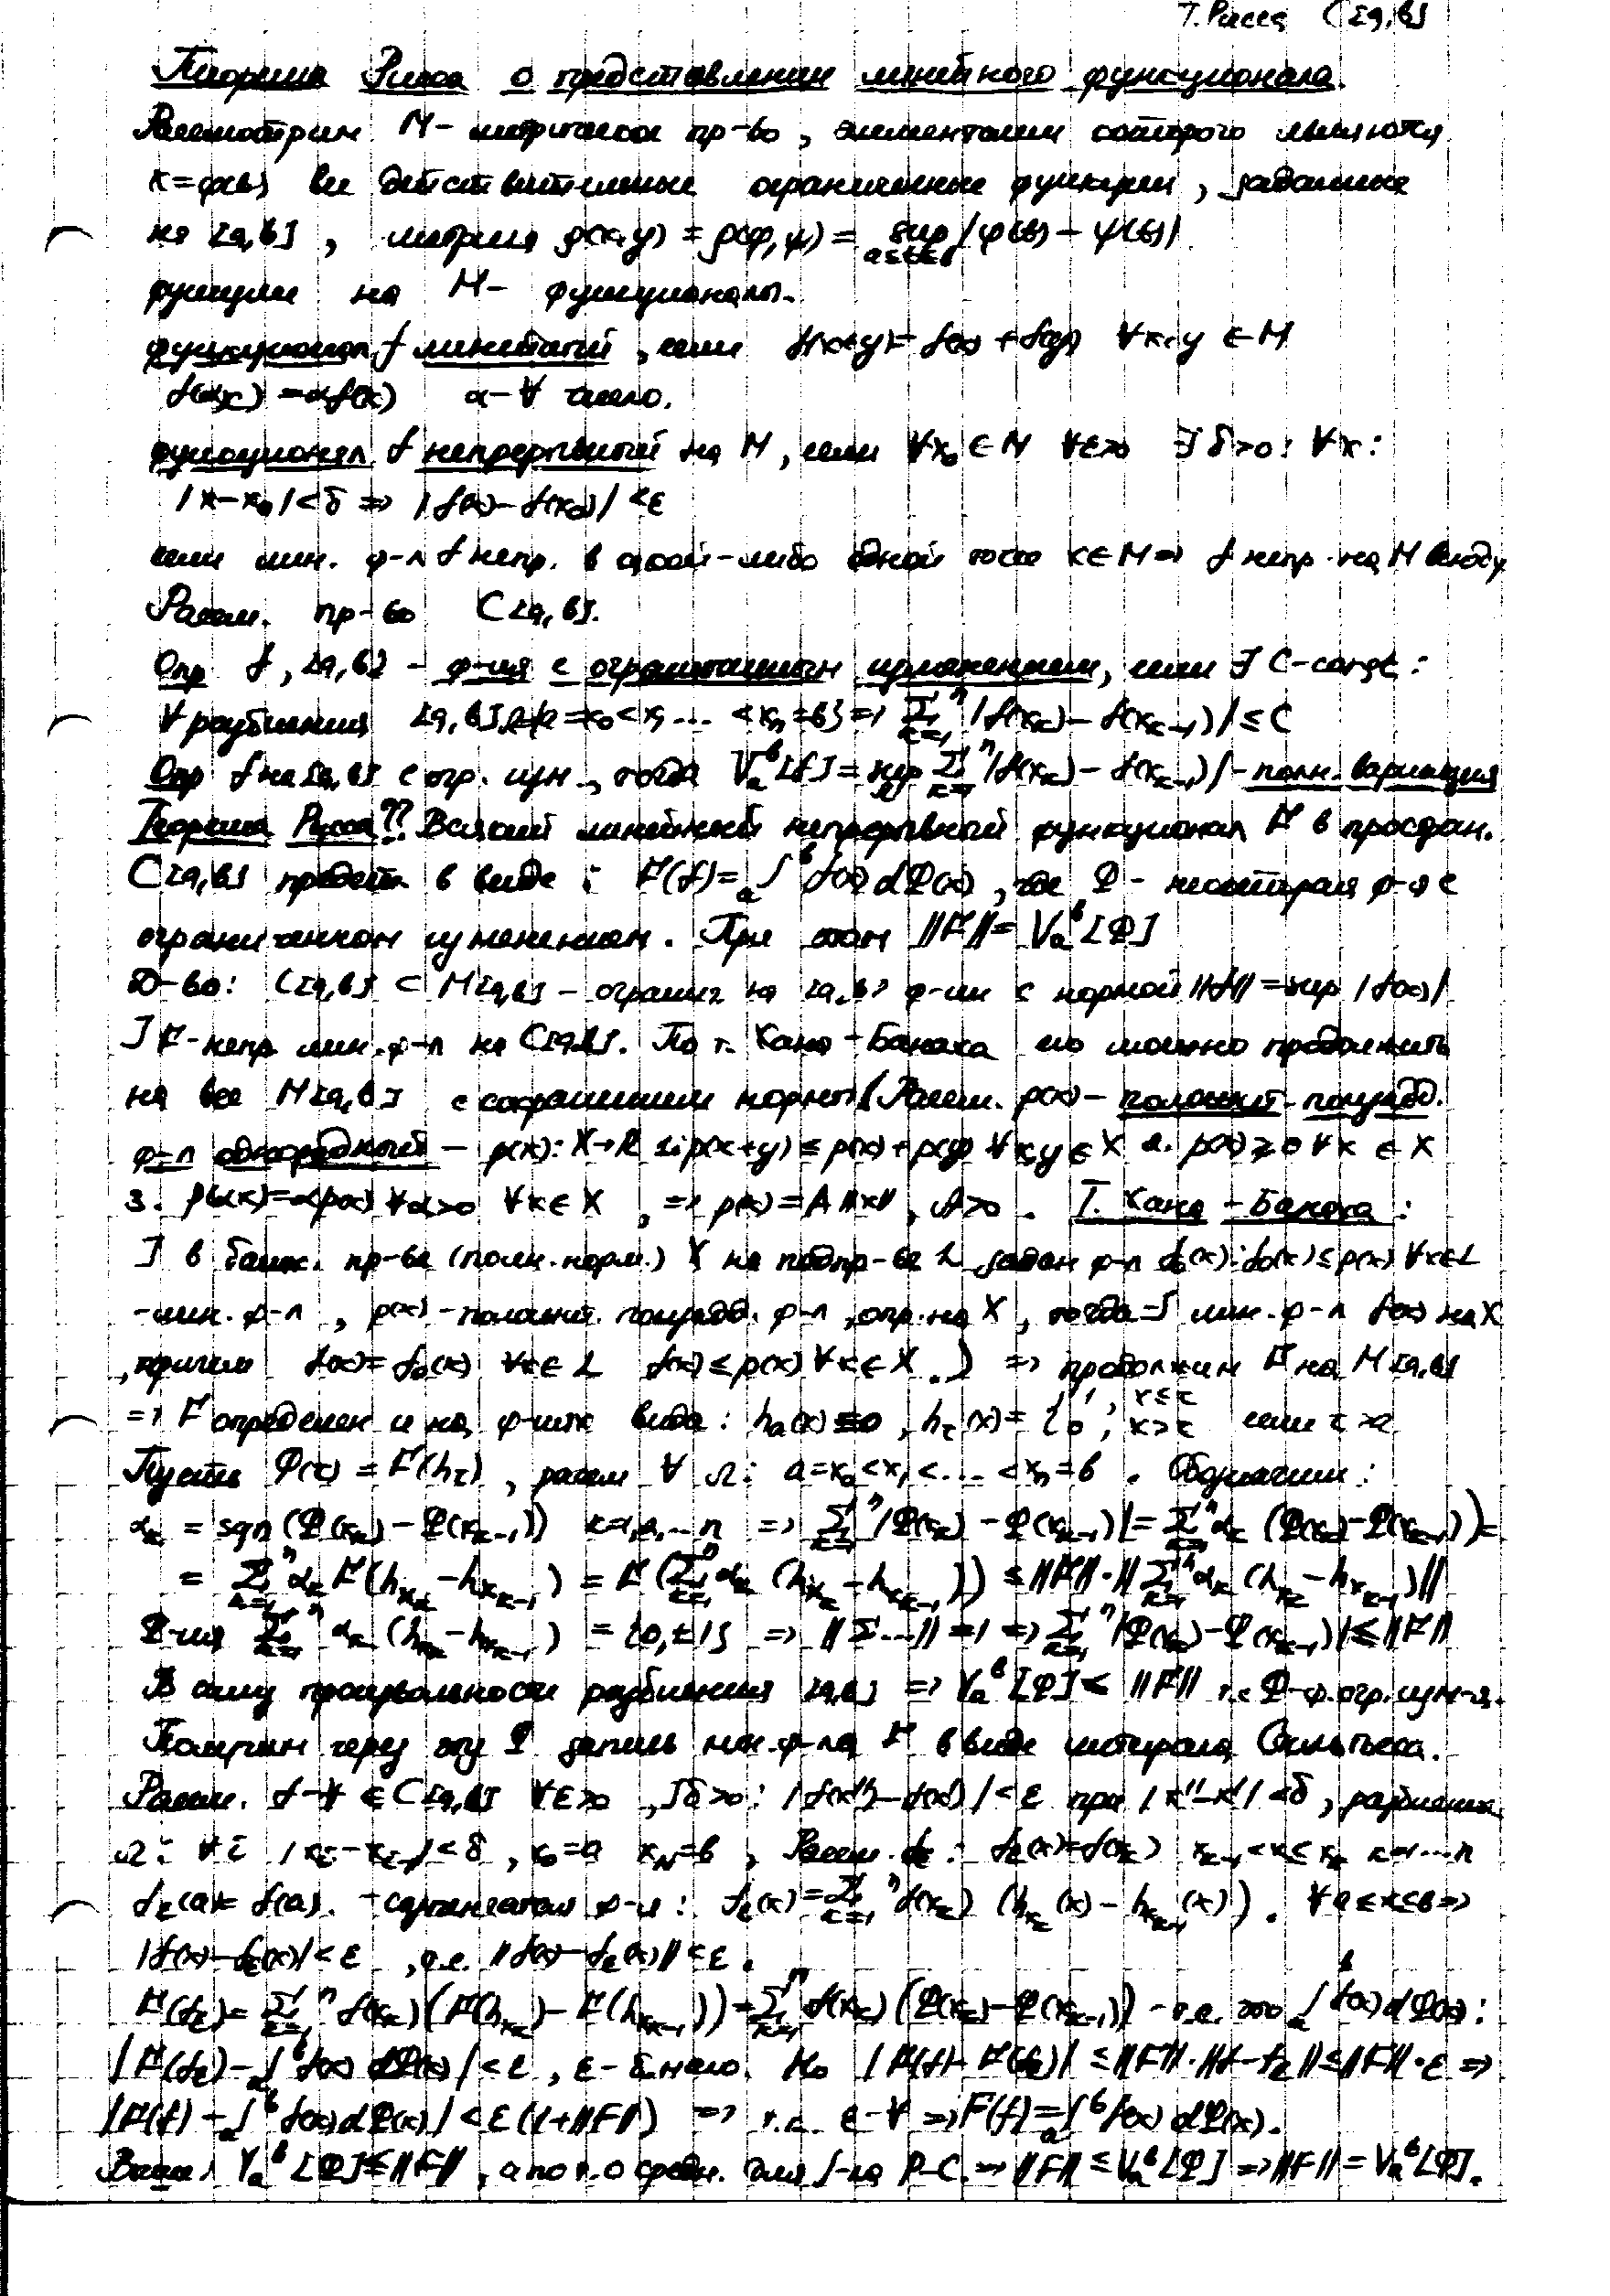 Т. Рисса C[a,b]
Теорема Рисса о представлении линейного функционала.
Рассмотрим M - метрическое пр-во, элементами которого являются
x=φ(t) все действительные ограниченные функции, заданные
на [a,b], метрика ρ(x,y) = ρ(φ,ψ) = sup_{a≤t≤b} |φ(t) - ψ(t)|
функции на M - функционалы.
функционал f линейный, если f(x+y)= f(x) + f(y) ∀x,y ∈ M
f(αx) = αf(x) α-∀ число.
функционал f непрерывный на M, если ∀x₀ ∈ M ∀ε>0 ∃ δ>0: ∀x:
|x-x₀|<δ => |f(x)-f(x₀)| <ε
если лин. ф-л f непр. в какой-либо одной точке x∈M => f непр. на M всюду
Рассм. пр-во C[a,b].
Опр f, [a,b] - ф-ция с ограниченным изменением, если ∃ C-const:
∀ разбиения [a,b] {a=x₀<x₁... <xₙ=b} => Σ_{k=1}^n |f(x_k) - f(x_{k-1})| ≤ C
Опр f на [a,b] с огр. изм., тогда V_a^b[f] = sup Σ_{k=1}^n |f(x_k) - f(x_{k-1})| - полн. вариация
Теорема Рисса??. Всякий линейный непрерывный функционал F в простран.
C[a,b] предст. в виде: F(f)= _a∫^b f(x) dΦ(x), где Φ - некоторая ф-я с
ограниченном изменением. При этом ||F|| = V_a^b[Φ]
Д-во: C[a,b] ⊂ M[a,b] - огранич на [a,b] ф-ии с нормой ||f|| = sup |f(x)|
] F-непр лин. ф-л на C[a,b]. По т. Хана-Банаха его можно продолжить
на все M[a,b] с сохранением нормы (Рассм. p(x) - положит. полуадд.
ф-л однородный - p(x): X→R 1. p(x+y) ≤ p(x) + p(y) ∀x,y ∈ X 2. p(x) ≥ 0 ∀x ∈ X
3. p(αx)=αp(x) ∀α>0 ∀x∈X, => p(x) = A||x||, A>0. Т. Хана - Банаха:
] в банах. пр-ве (полн. норм.) X на подпр-ве L задан ф-л f₀(x): f₀(x) ≤ p(x) ∀x∈L
- лин. ф-л, p(x) - положит. полуадд. ф-л, опр. на X, тогда ∃ лин. ф-л f(x) на X
, причем f(x)= f₀(x) ∀x∈L f(x) ≤ p(x) ∀x∈X.) => продолжим F на M[a,b]
=> F определен и на ф-циях вида: h_a(x) ≡ 0, h_τ(x) = {1, x≤τ 0, x>τ если τ>a
Пусть Φ(τ) = F(h_τ), рассм ∀ Ω: a=x₀<x₁<... <xₙ=b. Обозначим:
α_k = sgn(Φ(x_k) - Φ(x_{k-1})) k=1,2,...n => Σ_{k=1}^n |Φ(x_k) - Φ(x_{k-1})| = Σ_{k=1}^n α_k (Φ(x_k)-Φ(x_{k-1})) =
= Σ_{k=1}^n α_k F(h_{x_k} - h_{x_{k-1}}) = F(Σ_{k=1}^n α_k (h_{x_k} - h_{x_{k-1}})) ≤ ||F||·||Σ_{k=1}^n α_k (h_{x_k} - h_{x_{k-1}})||
Ф-ция Σ_{k=1}^n α_k (h_{x_k} - h_{x_{k-1}}) = {0,±1} => ||Σ...|| = 1 => Σ_{k=1}^n |Φ(x_k) - Φ(x_{k-1})| ≤ ||F||
В силу произвольности разбиения [a,b] => V_a^b[Φ] ≤ ||F|| т.е Φ-ф. огр. изм-я.
Получим через эту Φ запись лин. ф-ла F в виде интеграла Стильтьеса.
Рассм. f-∀ ∈ C[a,b] ∀ε>0, ∃δ>0: |f(x'')-f(x')| < ε при |x''-x'| <δ, разбиения
Ω: ∀i |x_i-x_{i-1}|<δ, x₀=a x_N=b, Рассм. f_ε: f_ε(x)=f(x_k) x_{k-1}<x≤x_k k=1...n
f_ε(a)= f(a). - ступенчатая ф-я: f_ε(x) = Σ_{k=1}^n f(x_k) (h_{x_k}(x) - h_{x_{k-1}}(x)). ∀a≤x≤b =>
|f(x)-f_ε(x)| < ε, т.е. ||f(x)-f_ε(x)|| < ε.
F(f_ε) = Σ_{k=1}^n f(x_k) (F(h_{x_k}) - F(h_{x_{k-1}})) = Σ_{k=1}^n f(x_k) (Φ(x_k) - Φ(x_{k-1})) - т.е. это _a∫^b f(x) dΦ(x):
|F(f_ε) - _a∫^b f(x) dΦ(x)| < ε, ε - б.мало. Но |F(f) - F(f_ε)| ≤ ||F||·||f-f_ε|| ≤ ||F||·ε =>
|F(f) - _a∫^b f(x) dΦ(x)| < ε(1+||F||) => т.к. ε-∀ => F(f) = _a∫^b f(x) dΦ(x).
Выше: V_a^b[Φ] ≤ ||F||, а по т. о средн. для ∫-ла Р-С. => ||F|| ≤ V_a^b[Φ] => ||F|| = V_a^b[Φ].